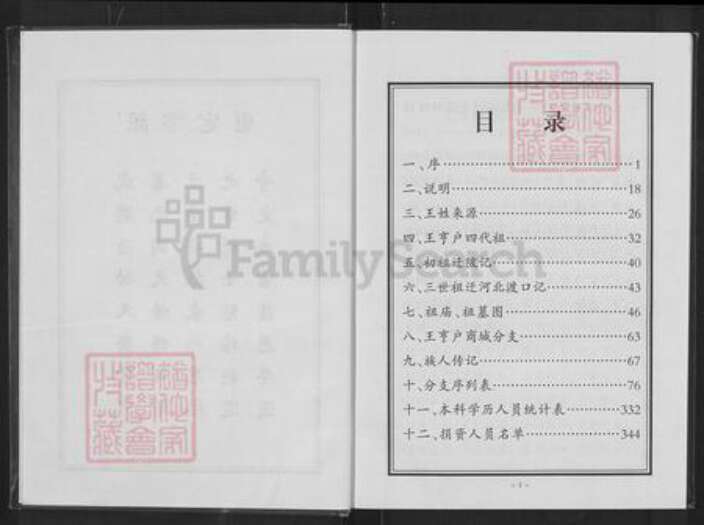 目 录
一、序…………………………1
二、说明…………………………18
三、王姓来源…………………………26
四、王亨户四代祖…………………………32
五、初祖迁陵记…………………………40
六、三世祖迁河北渡口记…………………………43
七、祖庙、祖墓图…………………………46
八、王亨户商城分支…………………………63
九、族人传记…………………………67
十、分支序列表…………………………76
十一、本科学历人员统计表…………………………332
十二、捐资人员名单…………………………344
- 1 -
FamilySearch